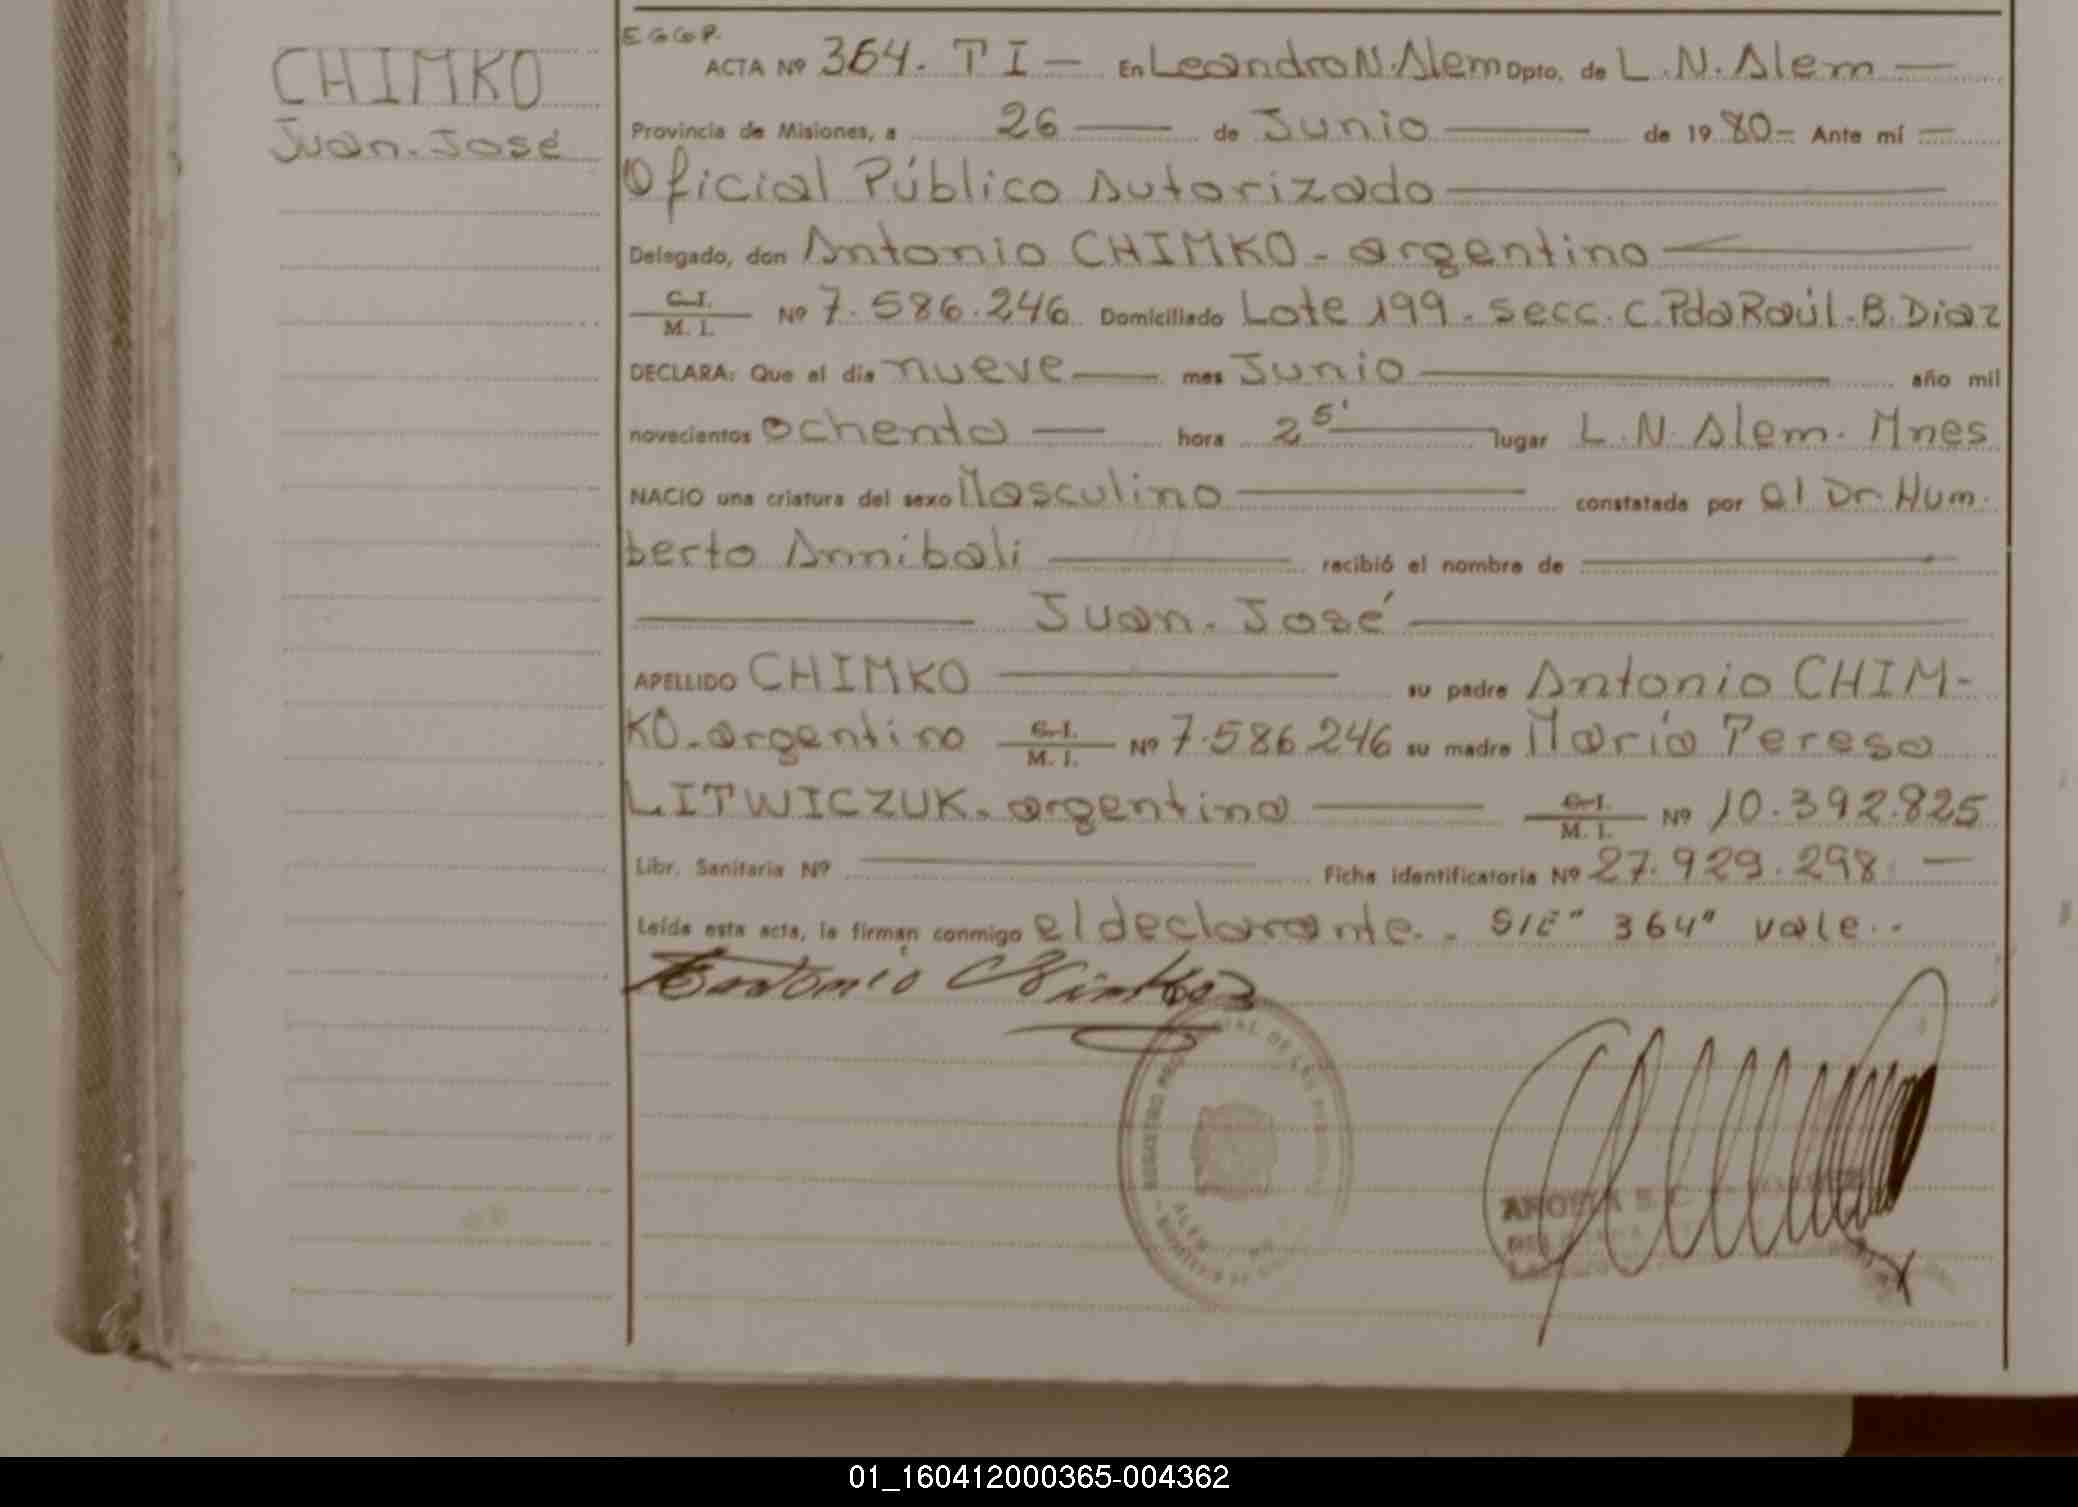 CHIMKO
Juan. José
E G G P.
ACTA Nº 364. T I — En Leandro N. Alem Dpto. de L. N. Alem —
Provincia de Misiones, a 26 — de Junio — de 1980 - Ante mí —
Oficial Público Autorizado
Delegado, don Antonio CHIMKO - argentino
C. I. / M. I. Nº 7.586.246 Domiciliado Lote 199. secc. C. Pda Raúl. B. Diaz
DECLARA: Que el día nueve — mes Junio — año mil
novecientos ochenta — hora 2 5' — lugar L. N. Alem. Mnes
NACIO una criatura del sexo Masculino — constatada por el Dr. Hum.
berto Annibali — recibió el nombre de —
— Juan. José —
APELLIDO CHIMKO — su padre Antonio CHIM-
KO. argentino C. I. / M. I. Nº 7.586 246 su madre María Teresa
LITWICZUK. argentina — C. I. / M. I. Nº 10.392.825
Libr. Sanitaria Nº — Ficha identificatoria Nº 27.929.298. —
Leída esta acta, la firman conmigo el declarante. - S/E" 364" vale..
Antonio Chimko
REGISTRO
ALEM
01_160412000365-004362